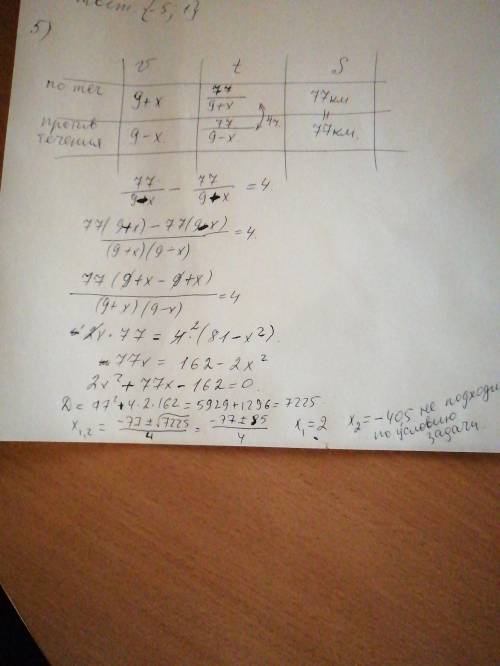 {-5; 1}
5)
v t S
по теч 9+x 77/(9+x) 77км
4ч. =
против течения 9-x 77/(9-x) 77км.
77/(9-x) - 77/(9+x) = 4.
(77(9+x) - 77(9-x))/((9+x)(9-x)) = 4.
(77(9+x-9+x))/((9+x)(9-x)) = 4
2x·77 = 4²·(81-x²).
77x = 162-2x²
2x²+77x-162=0.
D = 77²+4·2·162=5929+1296=7225
x₁,₂ = (-77±√7225)/4 = (-77±85)/4 x₁=2 x₂=-40,5 не подходи
по условию
задачи.